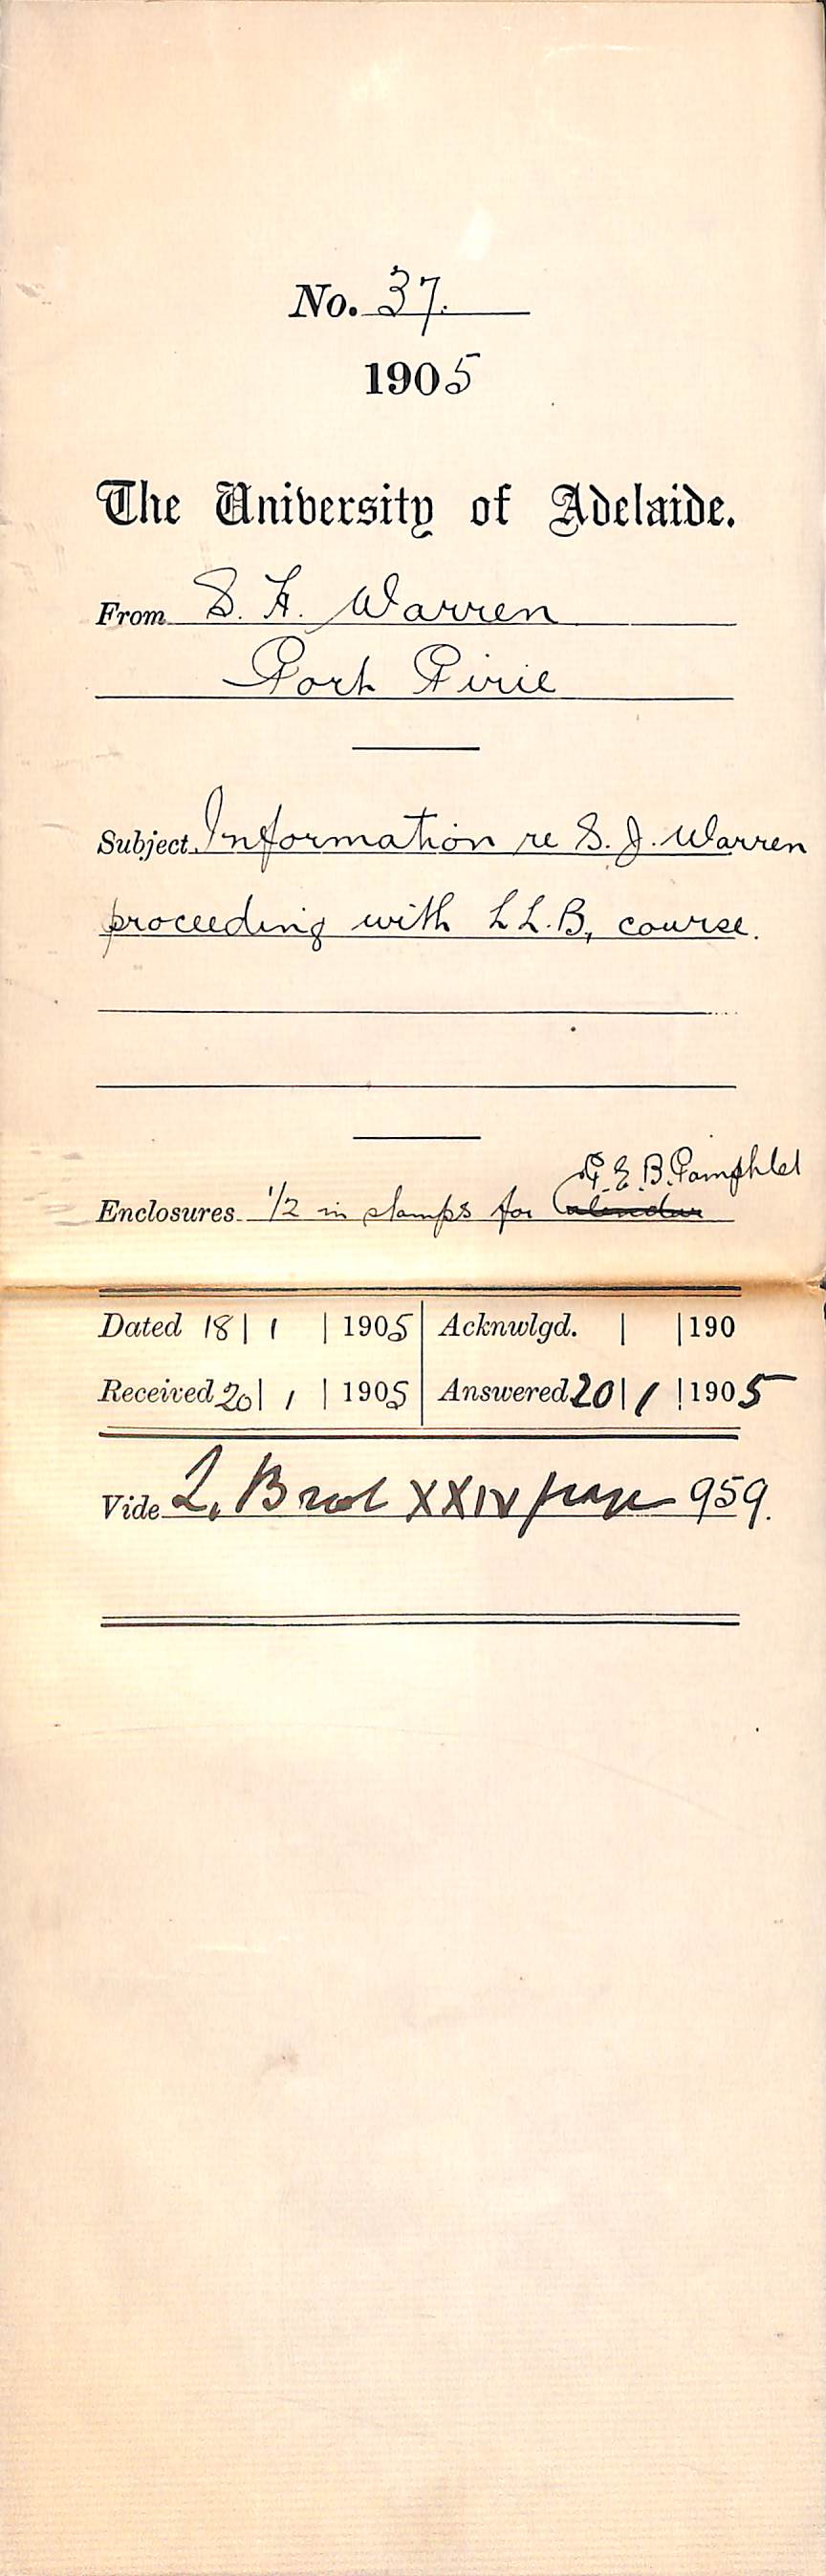 No. 37.
1905
The University of Adelaide.
From S. H. Warren
Port Pirie
Subject Information re S. J. Warren
proceeding with LL.B, course.
P. E. B. Pamphlet
Enclosures 1/2 in stamps for Calendar
Dated 18 | 1 | 1905 Acknwlgd. | | 190
Received 20 | 1 | 1905 Answered 20 | 1 | 1905
Vide L. Book XXIV page 959.